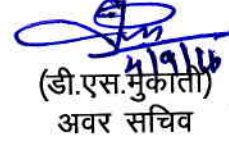 4/9/26
(डी.एस.मुकाती)
अवर सचिव